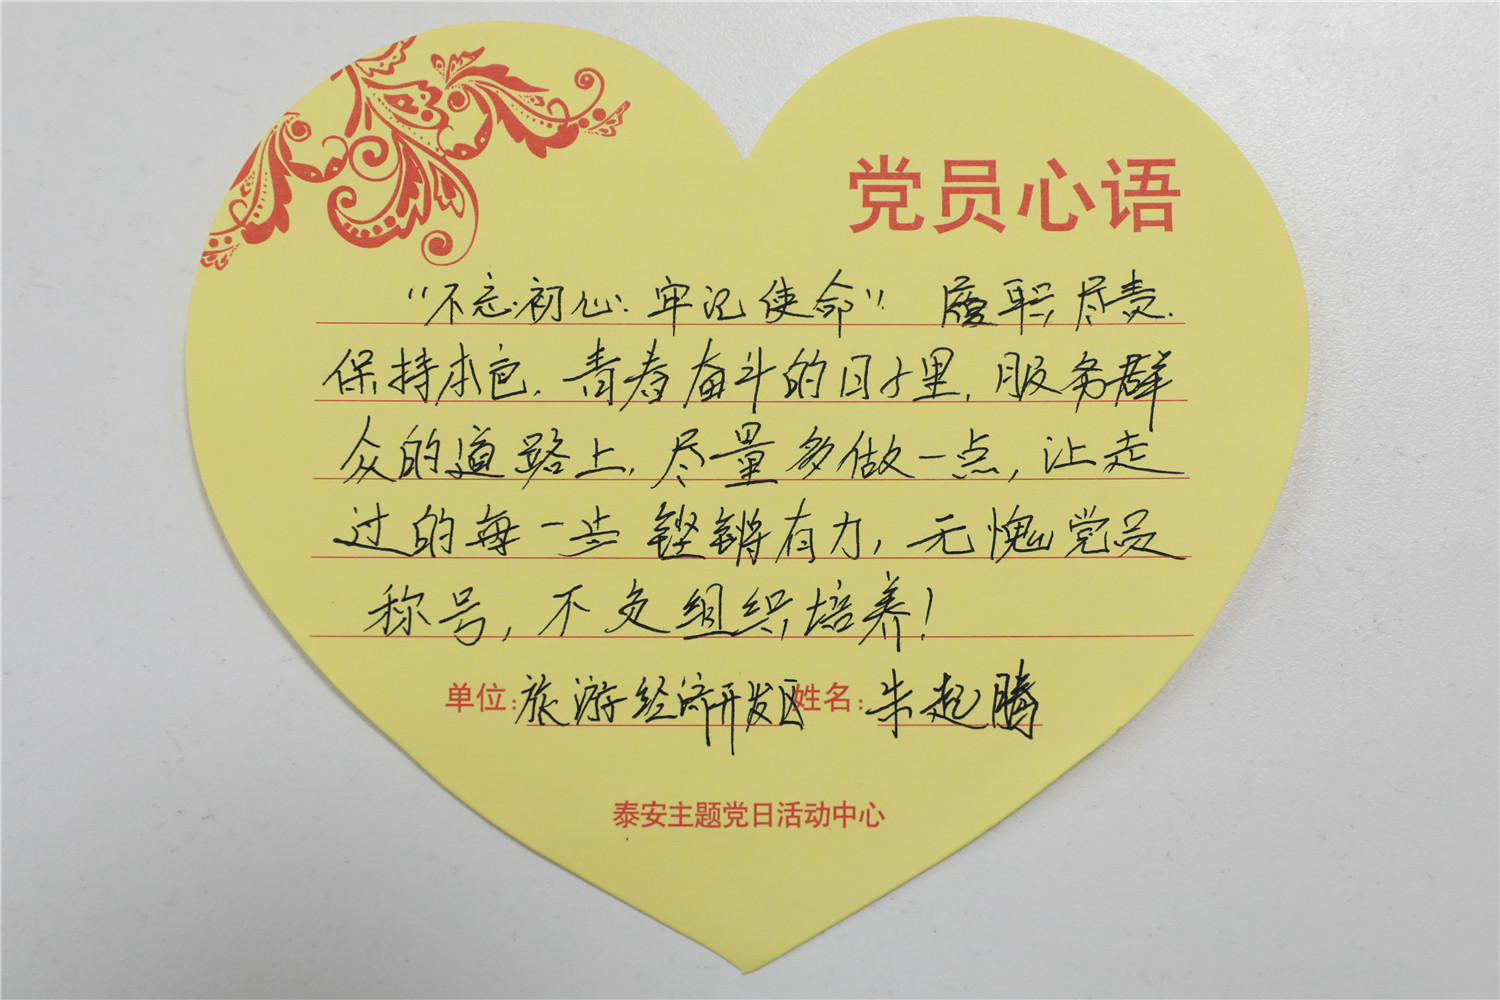 党员心语
“不忘初心：牢记使命” 履职尽责.
保持本色. 青春奋斗的日子里, 服务群
众的道路上, 尽量多做一点, 让走
过的每一步铿锵有力, 无愧党员
称号, 不负组织培养!
单位:旅游经济开发区 姓名:朱起腾
泰安主题党日活动中心